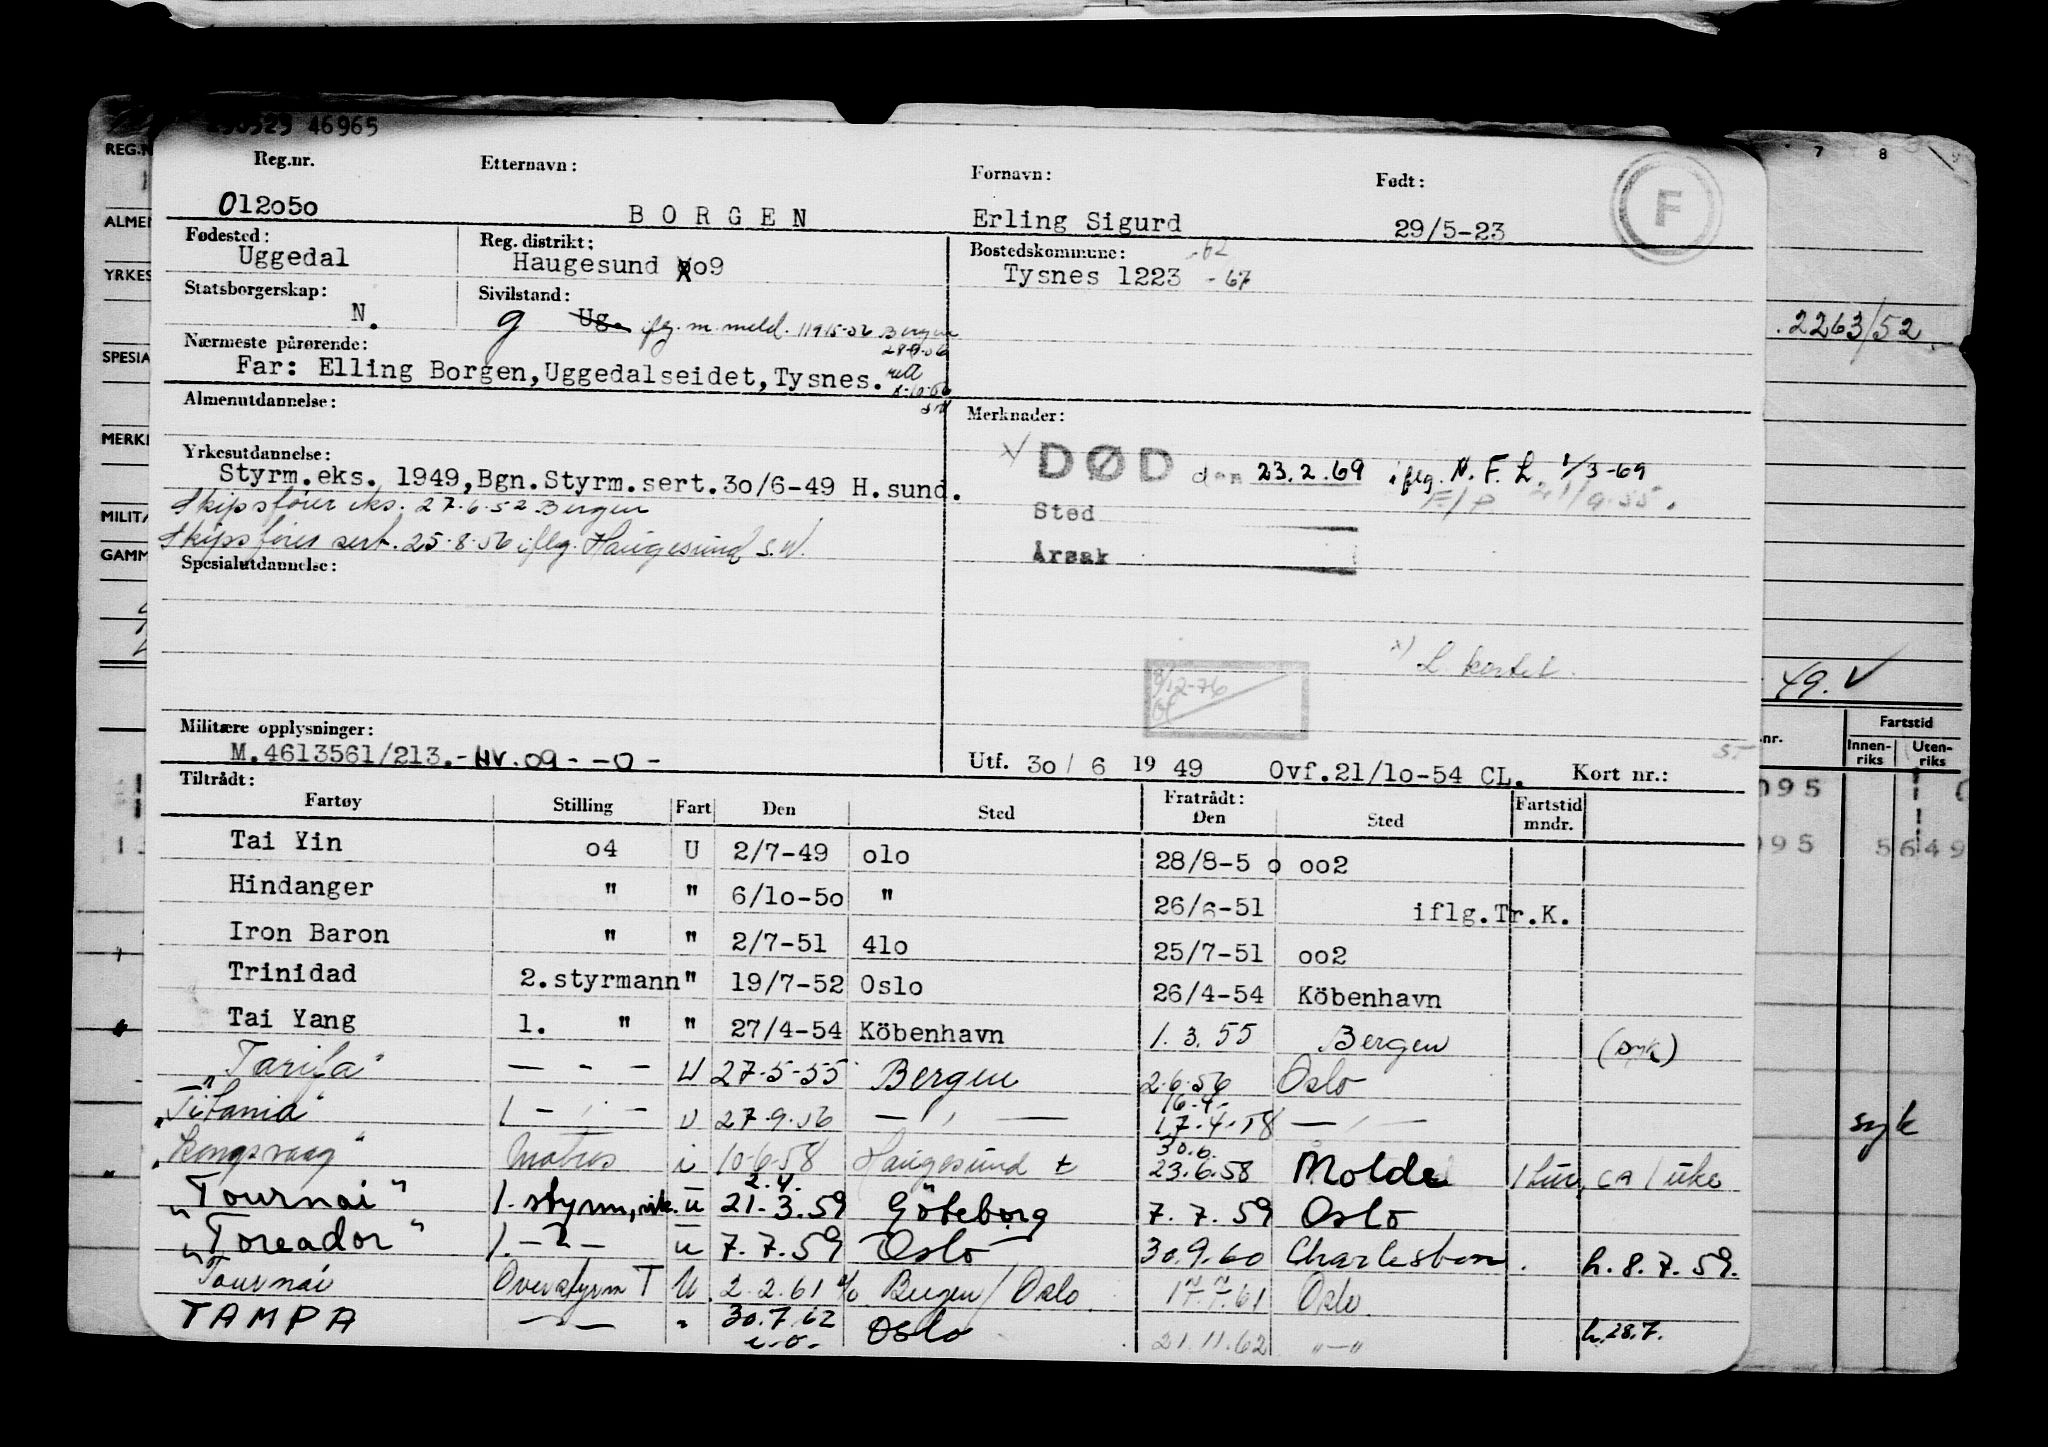 46965
Reg.nr. Etternavn: Fornavn: Født:
012050 BORGEN Erling Sigurd 29/5-23 F
Fødested: Reg. distrikt: Bostedskommune: -62
Uggedal Haugesund 09 Tysnes 1223 -67
Statsborgerskap: Sivilstand:
N. g Ug. iflg. m. meld. 11915-56 Bergen
28-9-56
Nærmeste pårørende:
Far: Elling Borgen, Uggedalseidet, Tysnes.
Almenutdannelse: Merknader:
DØD den 23.2.69 iflg. N. F. L. 1/3-69
Yrkesutdannelse:
Styrm.eks. 1949, Bgn. Styrm.sert. 30/6-49 H.sund.
Skipsfører eks. 27.6.52 Bergen
Sted
Skipsfører sert. 25.8.56 iflg. Haugesund S.W.
Årsak
Spesialutdannelse:
x) L. kortet.
8/12-76
Militære opplysninger:
M.4613561/213.- HV.09 - -0-
Utf. 30/6 1949 Ovf.21/10-54 CL. Kort nr.:
Tiltrådt: Fratrådt:
Fartøy Stilling Fart Den Sted Den Sted Fartstid mndr.
Tai Yin 04 U 2/7-49 010 28/8-50 002
Hindanger " " 6/10-50 " 26/6-51 iflg.Tr.K.
Iron Baron " " 2/7-51 410 25/7-51 002
Trinidad 2.styrmann " 19/7-52 Oslo 26/4-54 Köbenhavn
Tai Yang 1. " " 27/4-54 Köbenhavn 1.3.55 Bergen (syk)
"Tarifa" — - — U 27-5-55 Bergen 2.6.56 Oslo
16.4.
"Titania" 1 — , — U 27.9.56 — , — 17.4.58 — , —
30.6.
"Kongsvaag" Matros i 10-6-58 Haugesund t 23.6.58 Molde 1 tur, ca 1 uke
2.4.
"Tournai" 1. styrm, vik. u 21.3.59 Göteborg 7.7.59 Oslo
"Toreador" 1. — " — u 7.7.59 Oslo 30.9.60 Charleston. h. 8.7.59.
Tournai Overstyrm T U 2.2.61 Bergen / Oslo 17.7.61 Oslo
TAMPA — " — " 30.7.62 Oslo 21.11.62 "—" h.28.7.
e.o.
REG.N
ALMEN
YRKES
SPESIA
MERK
MILITÆ
GAMM
7 8 9
2263/52.
49. V
nr. Fartstid
Innen-riks Uten-riks
095
095 5649
syk